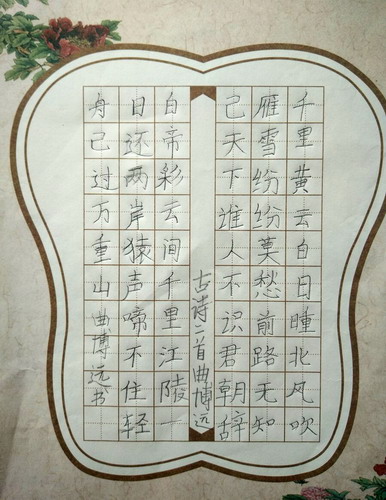 千里黄云白日曛北风吹
雁雪纷纷莫愁前路无知
己天下谁人不识君朝辞
古诗二首曲博远
白帝彩云间千里江陵一
日还两岸猿声啼不住轻
舟已过万重山曲博远书